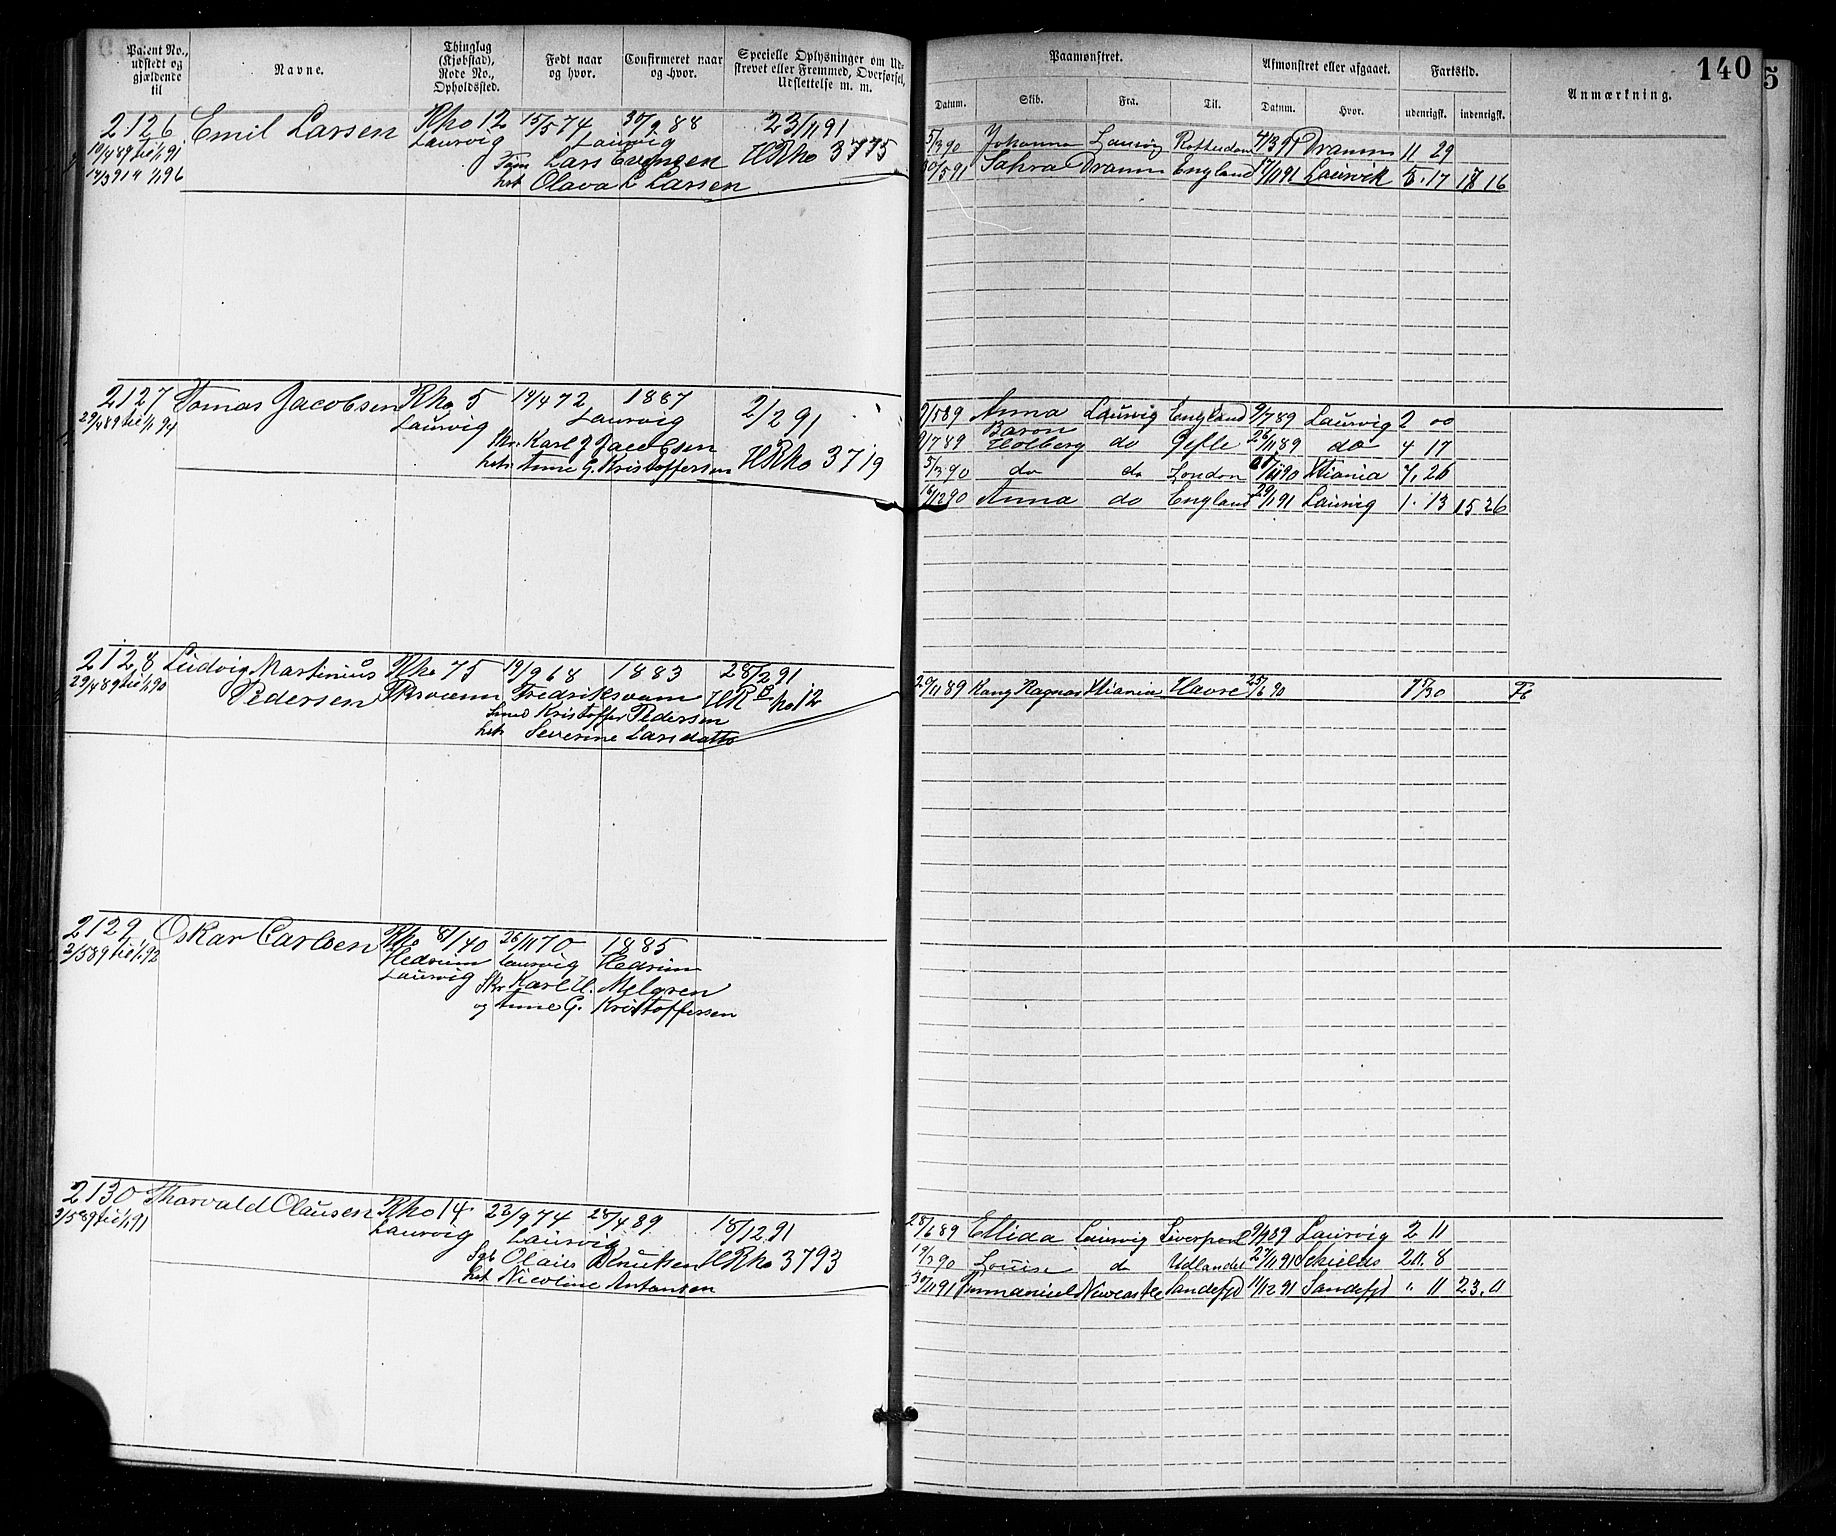 Patent No., udstedt og gjældende til
Navne.
Thinglag (Kjøbstad), Rode No., Opholdssted.
Født naar og hvor.
Confirmeret naar og hvor.
Specielle Oplysninger om Udstrevet eller Fremmed, Overførsel, Udslettelse m. m.
Paamønstret.
Afmønstret eller afgaaet.
Fartstid.
Anmærkning.
140
5
Datum. Skib. Fra. Til. Datum. Hvor. udenrigsk. indenrigsk.
2126 Emil Larsen Rho 12 15/5 74 30/9 88 23/11 91
10/4 89 til 1/1 91 Laurvig Laurvig
Lars Evensen HRho 3775
14/3 91 " 1/1 96 Olava L Larsen
5/3 90 Johanna Laurvig Rotterdam Dramm 11 29
30/5 91 Sahra Dramm England 17/11 91 Laurvik 5. 17 16
2127 Tomas Jacobsen Rho 5 19/4 72 1887 2/2 91
29/4 89 til 1/1 94 Laurvig Laurvig
Skr. Karl J Jacobsen HRho 3719
hst. Anne G. Kristoffersen
9/5 89 Anna Laurvig England 9/7 89 Laurvig 2 00
9/7 89 Baron Holberg do Gefle 26/11 89 do 4 17
5/3 90 do do London Xtiania 7. 26
14/12 90 Anna do England 29/1 91 Laurvig 1. 13 15 26
2128 Ludvig Martinius Rho 75 19/9 68 1883 28/2 91
29/4 89 til 1/1 90 Pedersen Fredriksværn
Smed Kristoffer Pedersen
hst. Severine Larsdatter
29/11 89 Kong Ragnar Xtiania Havre 25/6 90
2129 Oskar Carlsen Rho 81/40 26/11 70 1885
3/5 89 til 1/1 92 Hedrum Laurvig Hedrum
Laurvig Skr Karl H. Melgren
og Anne G. Kristoffersen
2130 Thorvald Olausen Rho 14 23/9 74 28/4 89 18/12 91
3/5 89 til 1/1 91 Laurvig Laurvig
Olaus Knutsen HRho 3793
hst Nicoline Antonsen
28/6 89 Ellida Laurvig Liverpool 9/9 89 Laurvig 2 11
19/3 90 Louise do Udlandet 27/11 91 Schields 20. 8
30/11 91 Immanuel Newcastle Sandefjd 11/12 91 Sandefjd " 11 23. 0